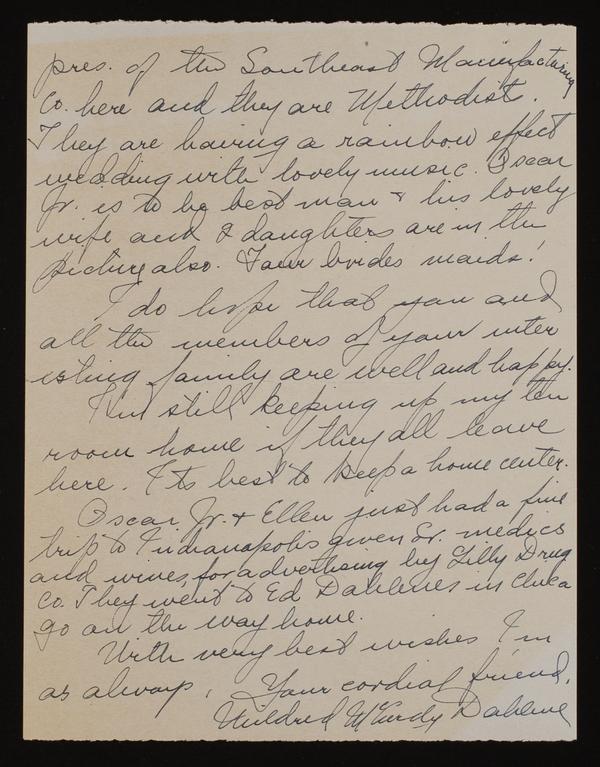 pres. of the Southeast Manufacturing
Co. here and they are Methodist.
They are having a rainbow effect
wedding with lovely music. Oscar
Jr. is to be best man & his lovely
wife and 2 daughters are in the
picture also. Four brides maids!
I do hope that you and
all the members of your inter
esting family are well and happy.
I'm still keeping up my ten
room home if they all leave
here. It's best to keep a home center.
Oscar Jr. + Ellen just had a fine
trip to Indianapolis given Sr. medics
and wives, for advertising by Lilly Drug
Co. They went to Ed Dahlenes in Chica
go on the way home.
With very best wishes I'm
as always, Your cordial friend,
Mildred McCurdy Dahlene